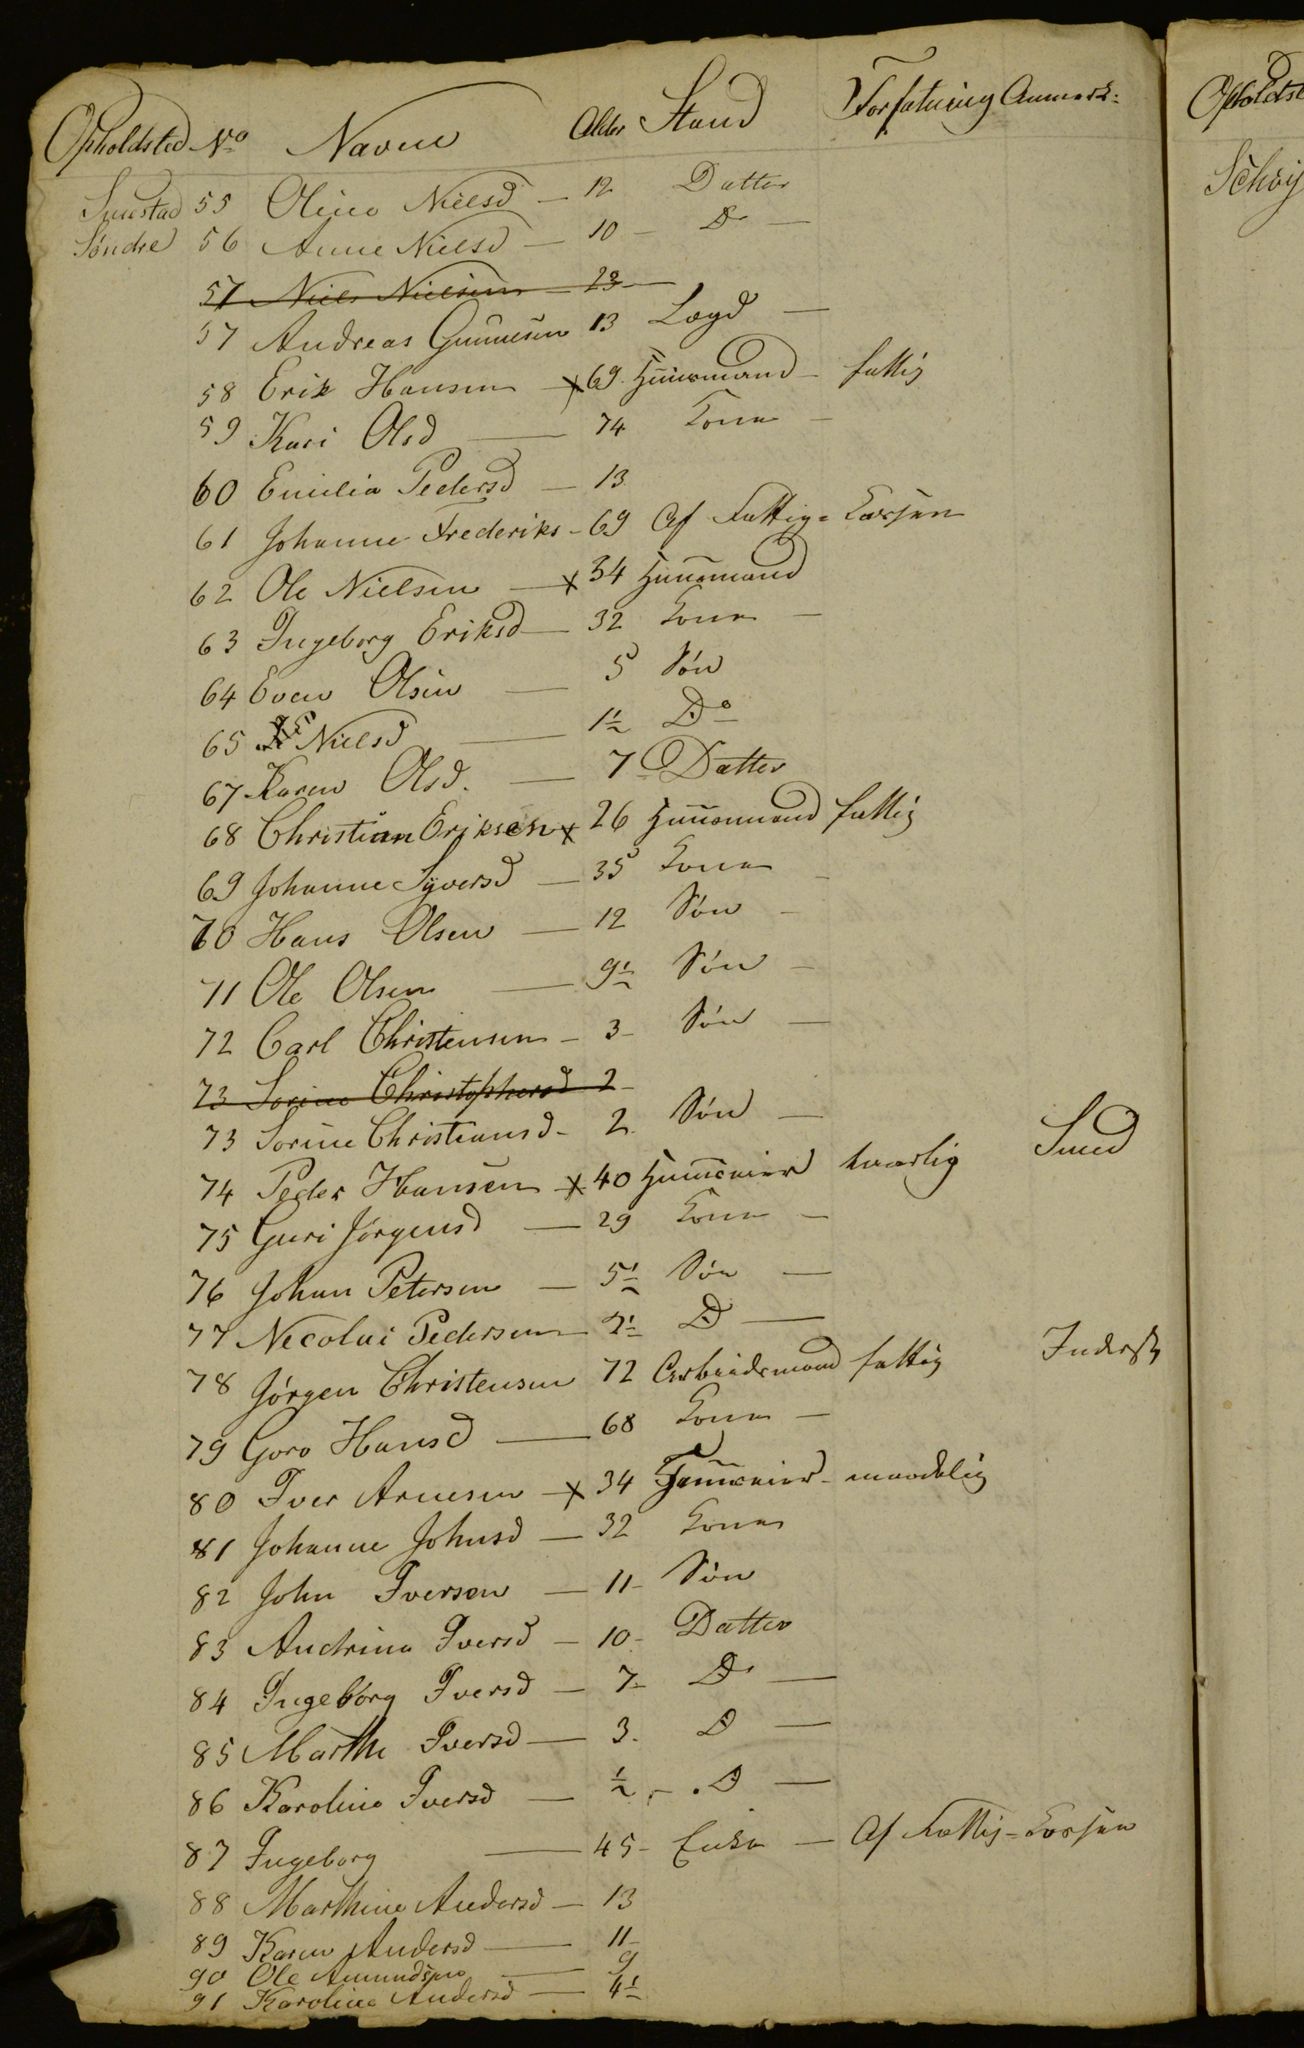 Opholdsted No Navne Alder Stand Forfatning Anmerk:
Smestad 55 Oline Nielsd — 12 Datter
Søndre 56 Anne Nielsd — 10 — Do —
57 Niels Nielsen — 23 —
57 Andreas Gunnesen 13 Lægd —
58 Erik Hansen — x 69. Huusmand — fattig
59 Kari Olsd — 74 Kone —
60 Emilia Pedersd — 13
61 Johanne Frederiks - 69 Af Fattig-Kassen
62 Ole Nielsen — x 34 Huusmand
63 Ingeborg Eriksd — 32 Kone —
64 Even Olsen — 5 Søn
65 Nielsd — 1½ Do
67 Karen Olsd. — 7 - Datter
68 Christian Eriksen x 26 Huusmand fattig
69 Johanne Syversd — 35 Kone —
70 Hans Olsen — 12 Søn —
71 Ole Olsen — 9½ Søn —
72 Carl Christensen - 3 - Søn —
73 Sorine Christophersd 2 -
73 Sorine Christiansd - 2. Søn —
74 Peder Hansen x 40 Huuseier Smed
75 Guri Jörgensd — 29 Kone —
76 Johan Petersen — 5½ Søn —
77 Necolai Pedersen — 2½ D —
78 Jörgen Christensen 72 Arbeidsmand fattig Inderst
79 Goro Hansd — 68 Kone —
80 Iver Arnesen — x 34 Huuseier - maadelig
81 Johanne Johnsd — 32 Kone
82 John Iversen — 11 - Søn
83 Andrine Iversd — 10 - Datter
84 Ingeborg Iversd — 7 - Do —
85 Marthe Iversd — 3. D —
86 Karoline Iversd — ½ - D —
87 Ingeborg — 45 - Enke — Af Fattig-Kassen
88 Marthine Andersd — 13
89 Karen Andersd — 11 -
90 Ole Amundsen — 9
91 Karoline Andersd — 4½
Opholdst
Schöy